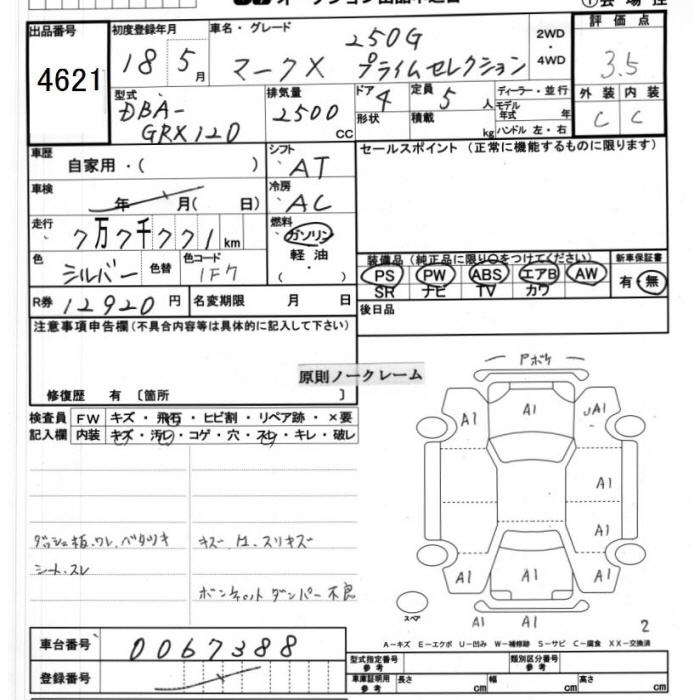 出品番号 4621
初度登録年月 18 5月
車名・グレード 250G
マークX プライムセレクション
2WD・4WD
評価点 3.5
外装 内装
C C
型式 DBA-
GRX120
排気量 2500 CC
ドア 4
形状
定員 5人
積載 kg
ディーラー・並行
モデル年式 年
ハンドル 左・右
車歴 自家用・( )
シフト AT
セールスポイント(正常に機能するものに限ります)
車検 年 月( 日)
冷房 AC
走行 7万7千771km
燃料 ガソリン
軽油
( ・ )
色 シルバー 色替
色コード 1F7
装備品(純正品に限り○をつけてください)
PS PW ABS エアB AW
SR ナビ TV カワ
新車保証書
有・無
R券 12920円
名変期限 月 日
後日品
注意事項申告欄(不具合内容等は具体的に記入して下さい)
原則ノークレーム
修復歴 有 〔箇所 〕
検査員記入欄
FW キズ・飛石・ヒビ割・リペア跡・×要
内装 キズ・汚レ・コゲ・穴・スレ・キレ・破レ
ダッシュ板、ワレ、ベタツキ
シート、スレ
キズ、凹、スリキズ
ボンネットダンパー不良
アボケ
A1 A1 UA1
A1
A1
A1 A1 A1
A1 A1
スペア
2
A－キズ E－エクボ U－凹み W－補修跡 S－サビ C－腐食 XX－交換済
車台番号 0067388
登録番号
型式指定番号 参考
類別区分番号 参考
車庫証明用 参考
長さ cm
幅 cm
高さ cm